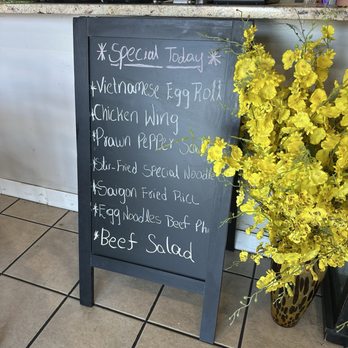 *Special Today*
*Vietnamese Egg Roll
*Chicken Wing
*Prawn Pepper
*Stir-Fried Special Noodle
*Saigon Fried Rice
*Egg Noodles Beef Ph
*Beef Salad